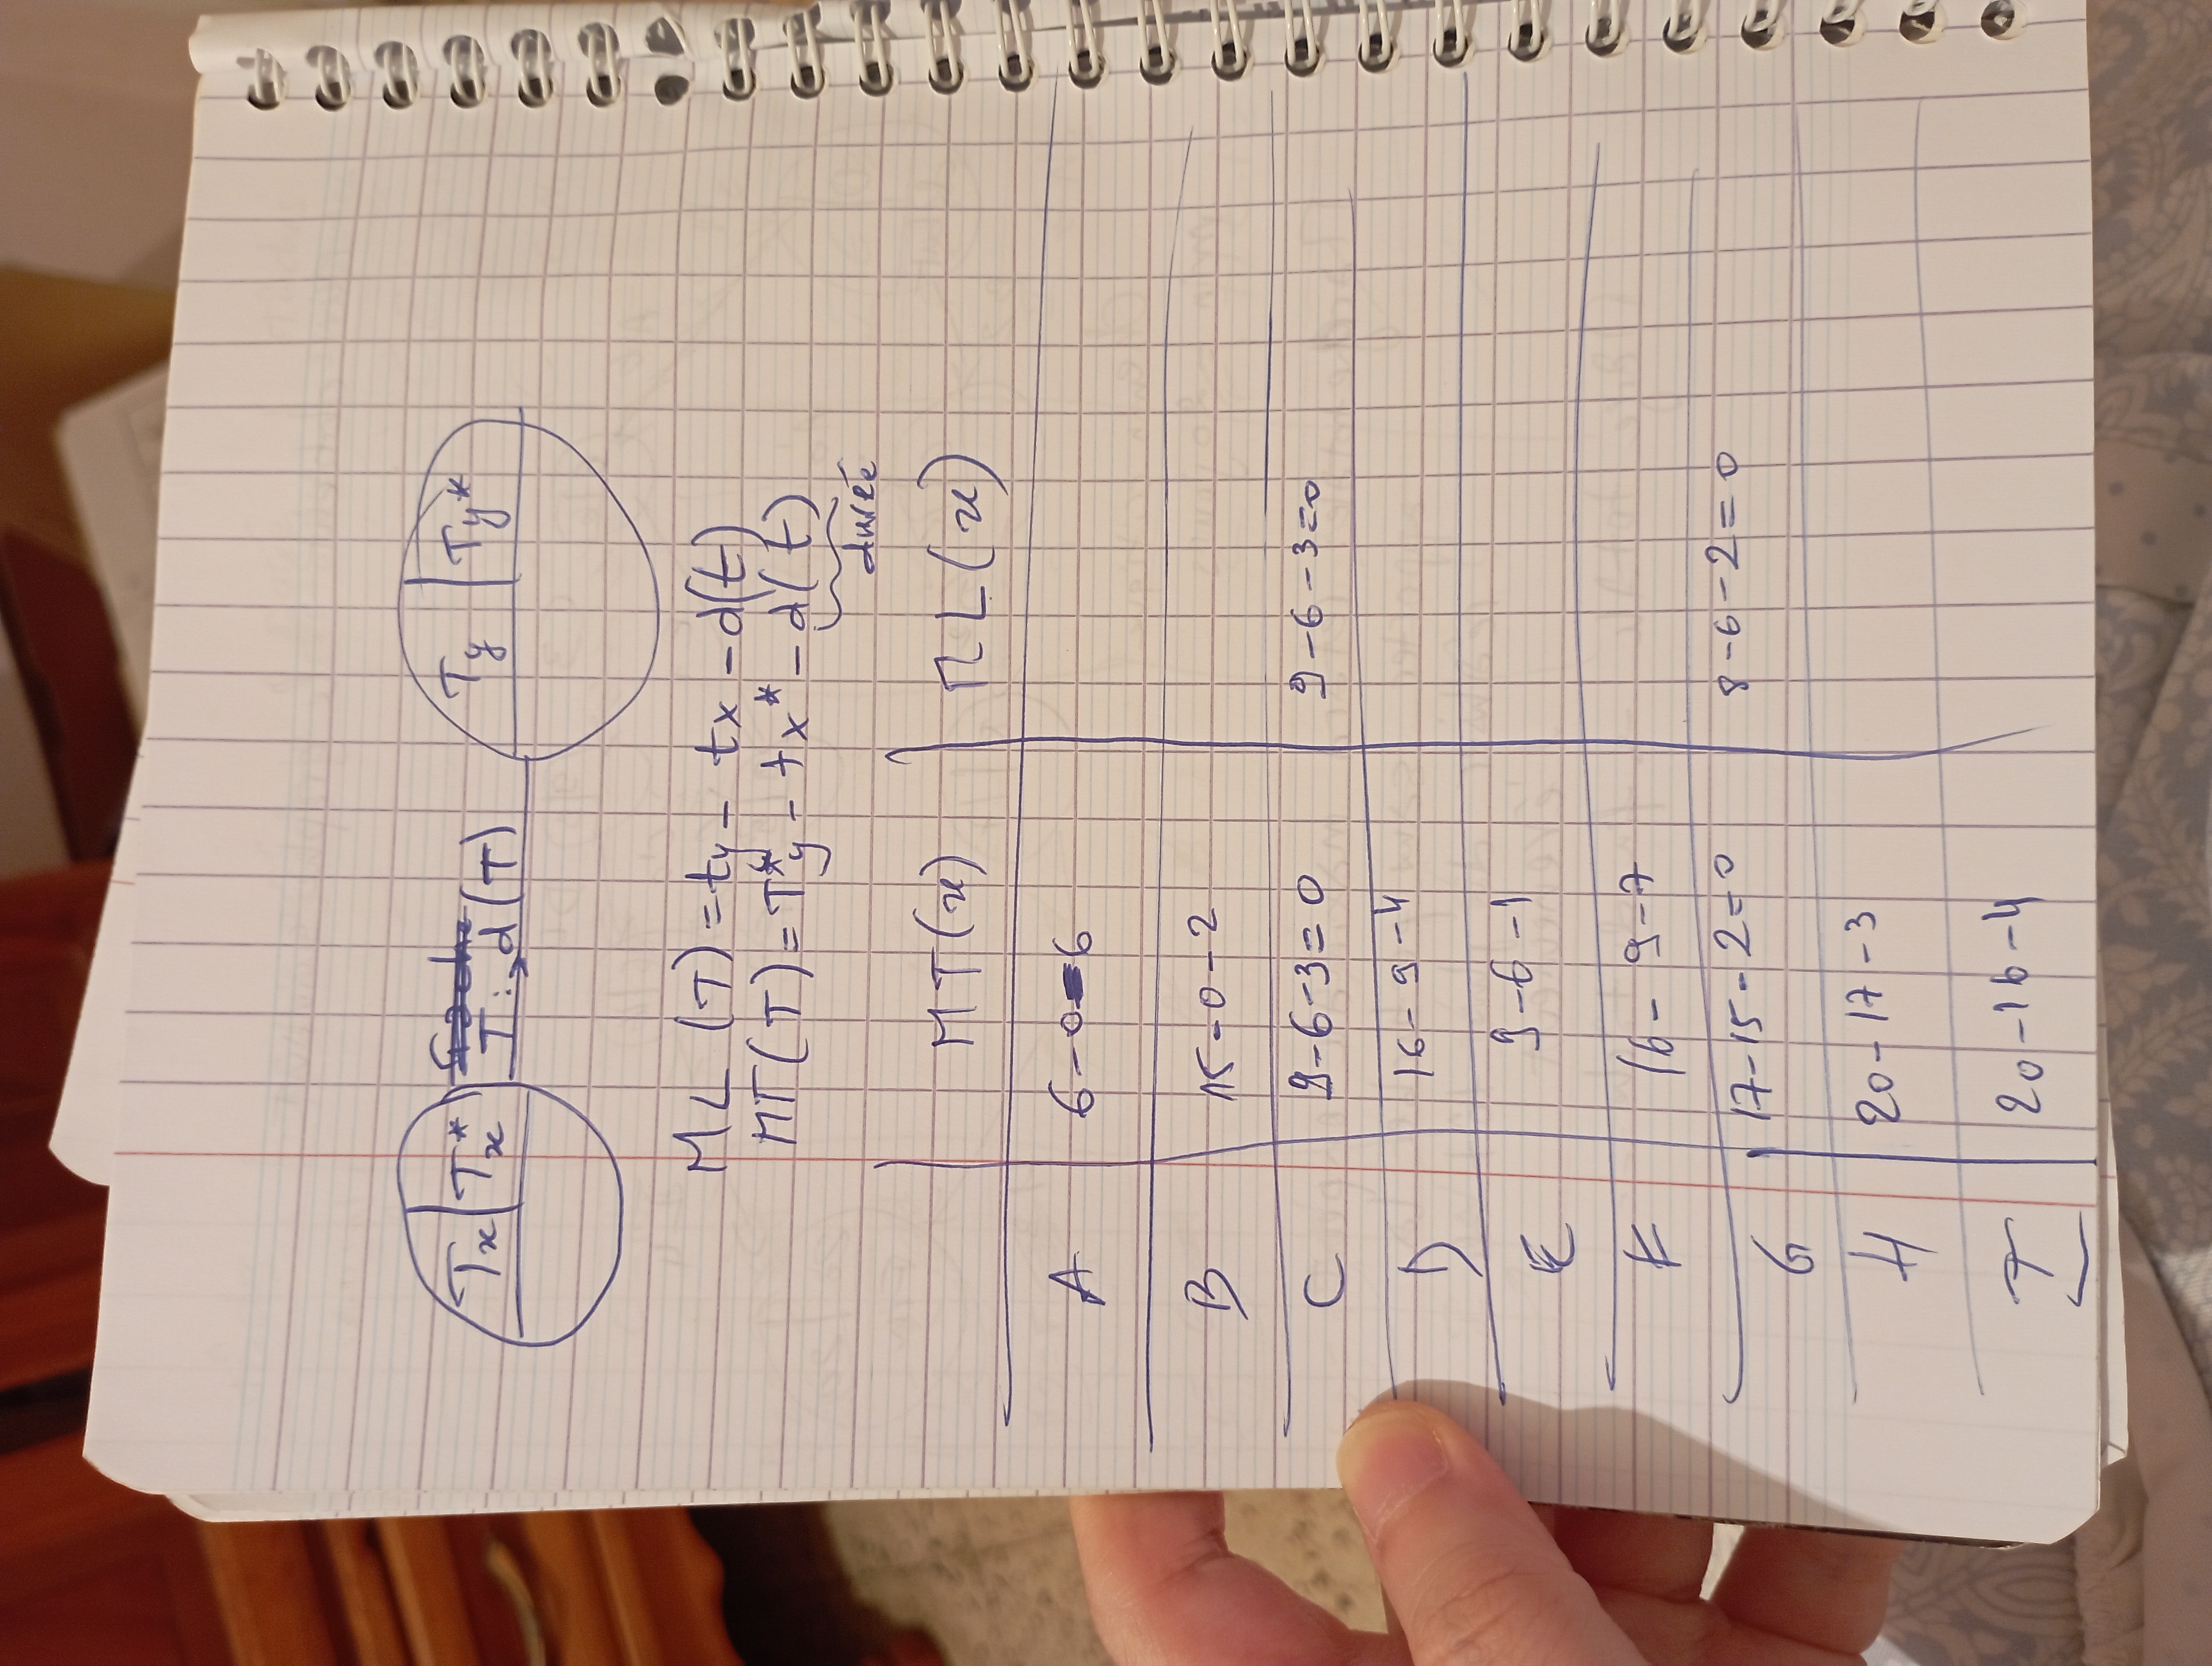 Tx | Tx* T : d(T) Ty | Ty*
ML (T) = ty - tx - d(t)
MT(T) = T*y - tx* - d(t)
durée
MT(x) ML(x)
A 6-0-6
B 15-0-2
C 9-6-3=0 9-6-3=0
D 16-9-4
E 9-6-1
F 16-9-7
G 17-15-2=0 8-6-2=0
H 20-17-3
I 20-16-4